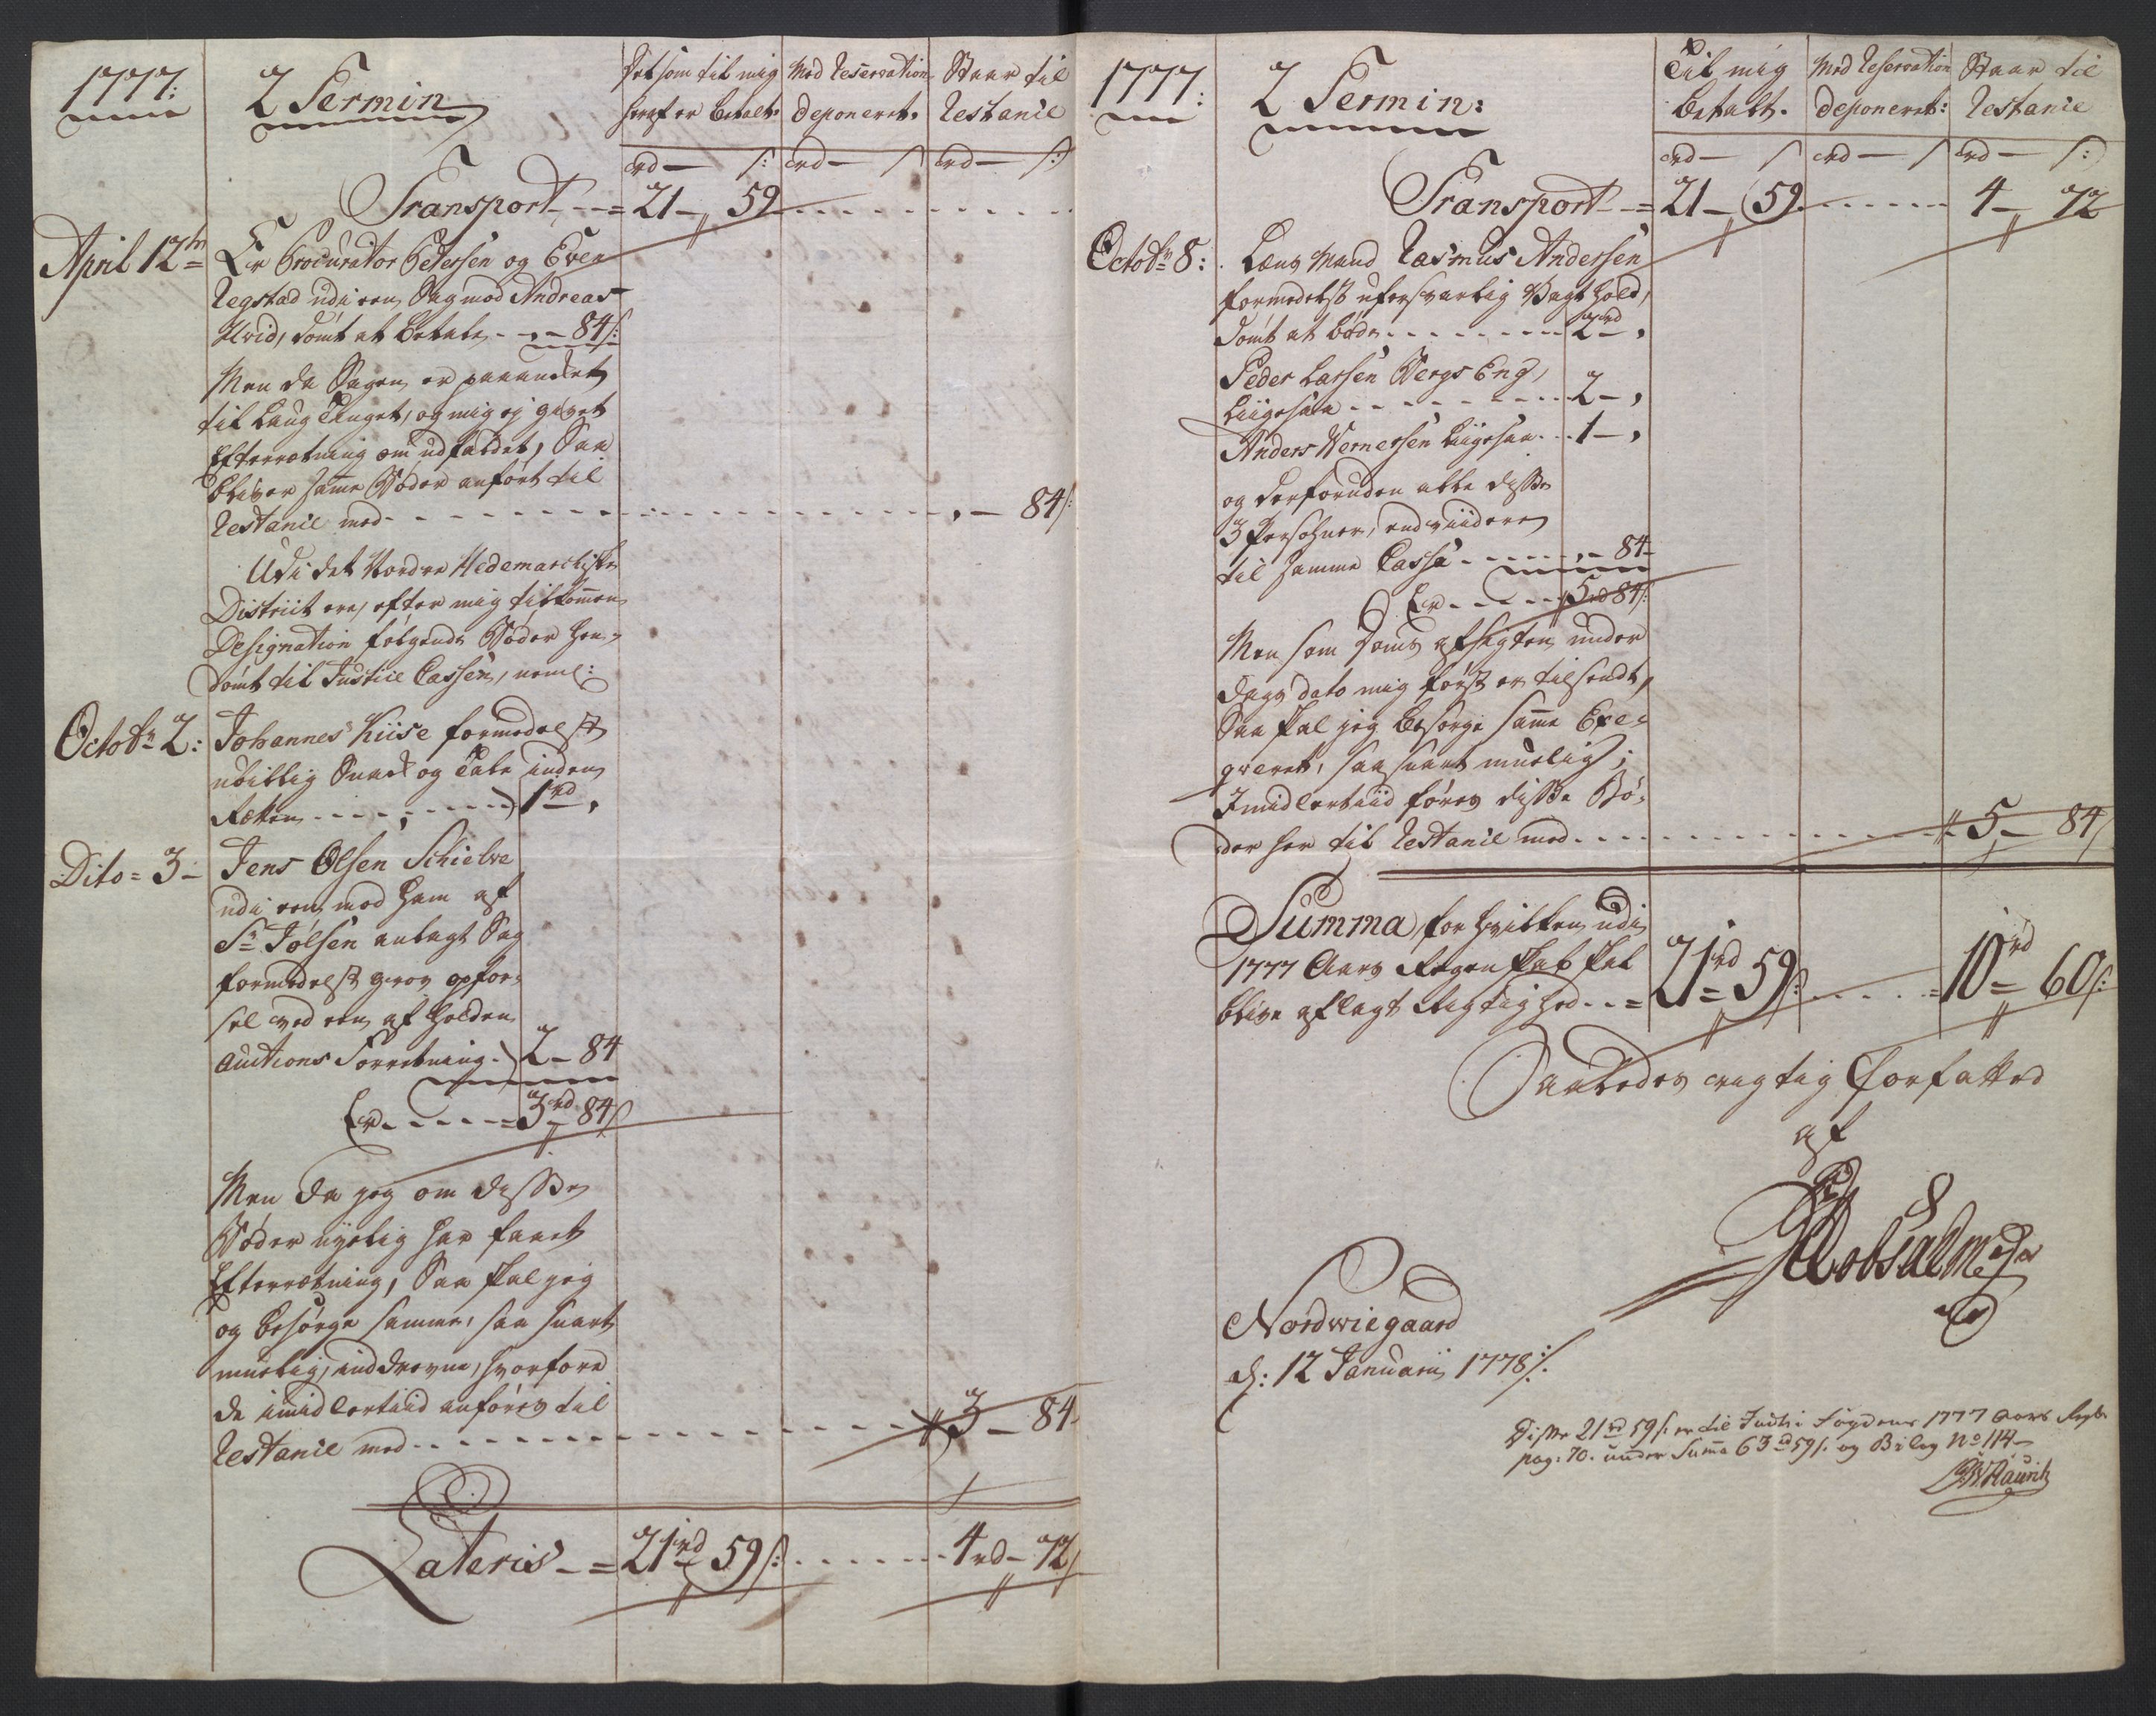 1777:
2 Termin
Det som til mig
heraf er betalt.
Med Reservation
deponeret.
Staar til
Restance
rd — s: rd — s rd — s:
Transport - - = 21 - 59 . . . . . . . . . .
April 12te = Er Procurator Petersen og Even
Regstad udi een Sag mod Andreas
Hvid, dømt at betale - - , - 84 s:
Men da Sagen er paaancket
til Laug Tinget, og mig ej givet
Efterretning om udfaldet, Saa
bliver samme Bøder anført til
Restance med - - - - - - - - , - 84 s:
Udi det Nordre Hedemarchiske
District ere, efter mig tilkommen
Designation følgende Bøder hen-
dømt til Justice Cassen, neml:
Octobr 2: Johannes Kiise formedelst
ubillig Snack og Tale inden
Retten - - - - - - 1 rd ,
Dito = 3 - Jens Olsen Schielve
udi een mod ham af
Sr Jølsen anlagt Sag
formedelst grov opfør-
sel ved een af holden
Auctions Forretning. 2 - 84
Er - - - - - = 3 rd 84 s
Men da jeg om disse
Bøder nyelig har faaet
Efterretning, Saa skal jeg
og besørge samme, saa snart
muelig, inddrevne, hvorfore
de imidlertiid anføres til
Restance med - - - - - - - - - 3 - 84
Lateris - = 21 rd 59 s: . . . . . . . 4 rd - 72 s
1777:
2 Termin:
Til mig
betalt.
Med Reservation
deponeret:
Staar til
Restance
rd — s rd — s rd — s:
Transport - = 21 - 59 . . . . . . . 4 - 72
Octobr 8: Lens Mand Rasmus Andersen
formedelst uforsvarlig Vagt hold,
dømt at bøde - - - - - - - 2 rd ,
Peder Larsen Bergs Eng,
liigesaa - - - - - - - - - 2 - ,
Anders Wernersen liigesaa - - 1 - ,
og derforuden alle disse
3 Persohner, end viidere
til samme Cassa - - - - - , - 84 -
Er - - - - - 5 rd 84 s:
Men som doms afsigten under
Dags dato mig først er tilsendt,
Saa skal jeg besørge samme Exe-
qveret, saa snart muelig;
Imidlertiid føres disse Bø-
der her til Restance med - - - - - - - 5 - 84 s
Summa, for hvilken udi
1777 Aars Regenskab skal
blive aflagt Rigtighed - - = 21 rd = 59 s: . . . . . = 10 rd = 60 s:
Saaledes rigtig forfatted
af
Nordwiegaard
d: 12 Januarii 1778 s:
Disse 21 rd 59 s. er til Indtægt i Fogdens 1777 Aars Regsk.
pag: 70. under Summa 63 rd 59 s. og Bilag No 114 -